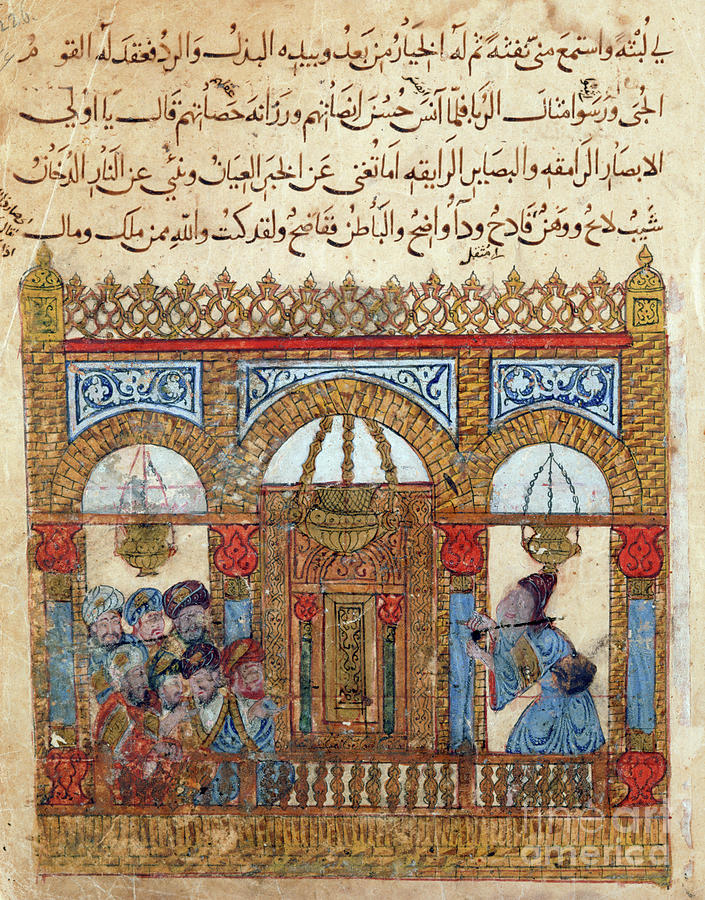 في لبثه واستمع مني نفثه ثم له الخيار من بعد وبيده البذل والرد فعقد له القوم
الحبى ورسوا امثال الربا فلما آنس حسن انصاتهم ورزانة حصاتهم قال يا اولي
الابصار الرامقه والبصاير الرايقه اما تغنى عن الخبر العيان وتنبي عن النار الدخان
شيب لاح ووهن فادح وداء واضح والباطن ففاضح ولقد كنت والله ممن ملك ومال
fine art
america